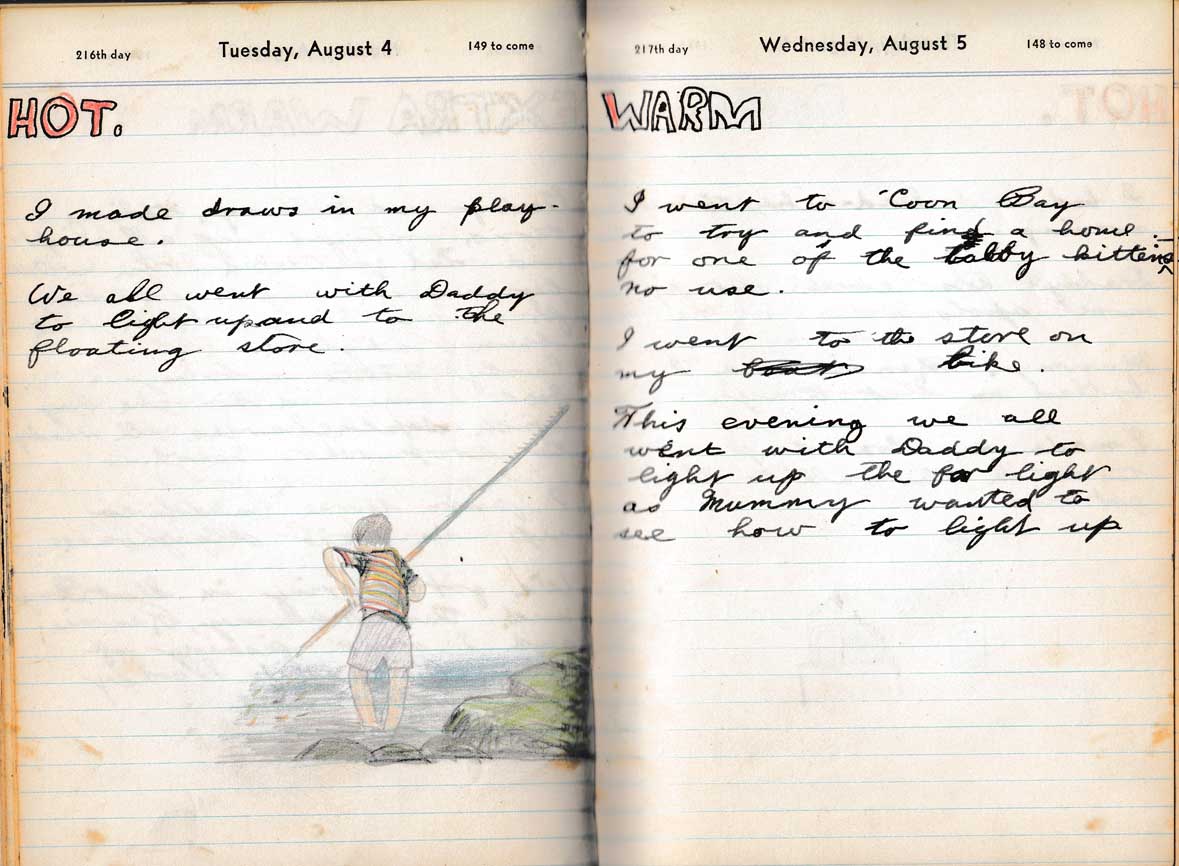 216th day Tuesday, August 4 149 to come
HOT.
I made draws in my play-
house.
We all went with Daddy
to light up and to the
floating store.
217th day Wednesday, August 5 148 to come
WARM
I went to 'Coon Bay
to try and find a home
for one of the tabby kittens
no use.
I went to the store on
my boat bike.
This evening we all
went with Daddy to
light up the far light
as Mummy wanted to
see how to light up